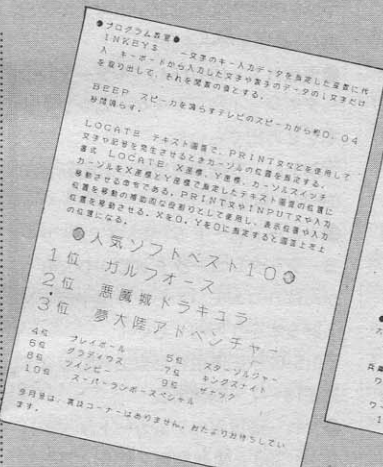 ●プログラム教室●
INKEY$ 一文字のキー入力データを指定した変数に代
入 キーボードから入力した文字や数字のデータの1文字だけ
を取り出して、それを関数の値とする。
BEEP スピーカを鳴らすテレビのスピーカから約0.04
秒間鳴らす。
LOCATE テキスト画面で、PRINT文などを使用して
文字や記号を発生させるときカーソルの位置を指定する。
書式 LOCATE X座標，Y座標，カーソルスイッチ
カーソルをX座標とY座標で指定したテキスト画面の位置に
移動させる命令である。PRINT文やINPUT文や入力
位置を移動の補助的な役割りとして使用し、表示位置や入力
位置を移動させる。Xを0，Yを0に指定すると画面上左上
の位置になる。
◎人気ソフトベスト10◎
1位 ガルフォース
2位 悪魔城ドラキュラ
3位 夢大陸アドベンチャー
4位 プレイボール 5位 スターソルジャー
6位 グラディウス 7位 キングスナイト
8位 ツインビー 9位 ザナック
10位 スーパーランボースペシャル
今月号は、裏はコーナーはありません。おたよりお待ちしてい
ます。